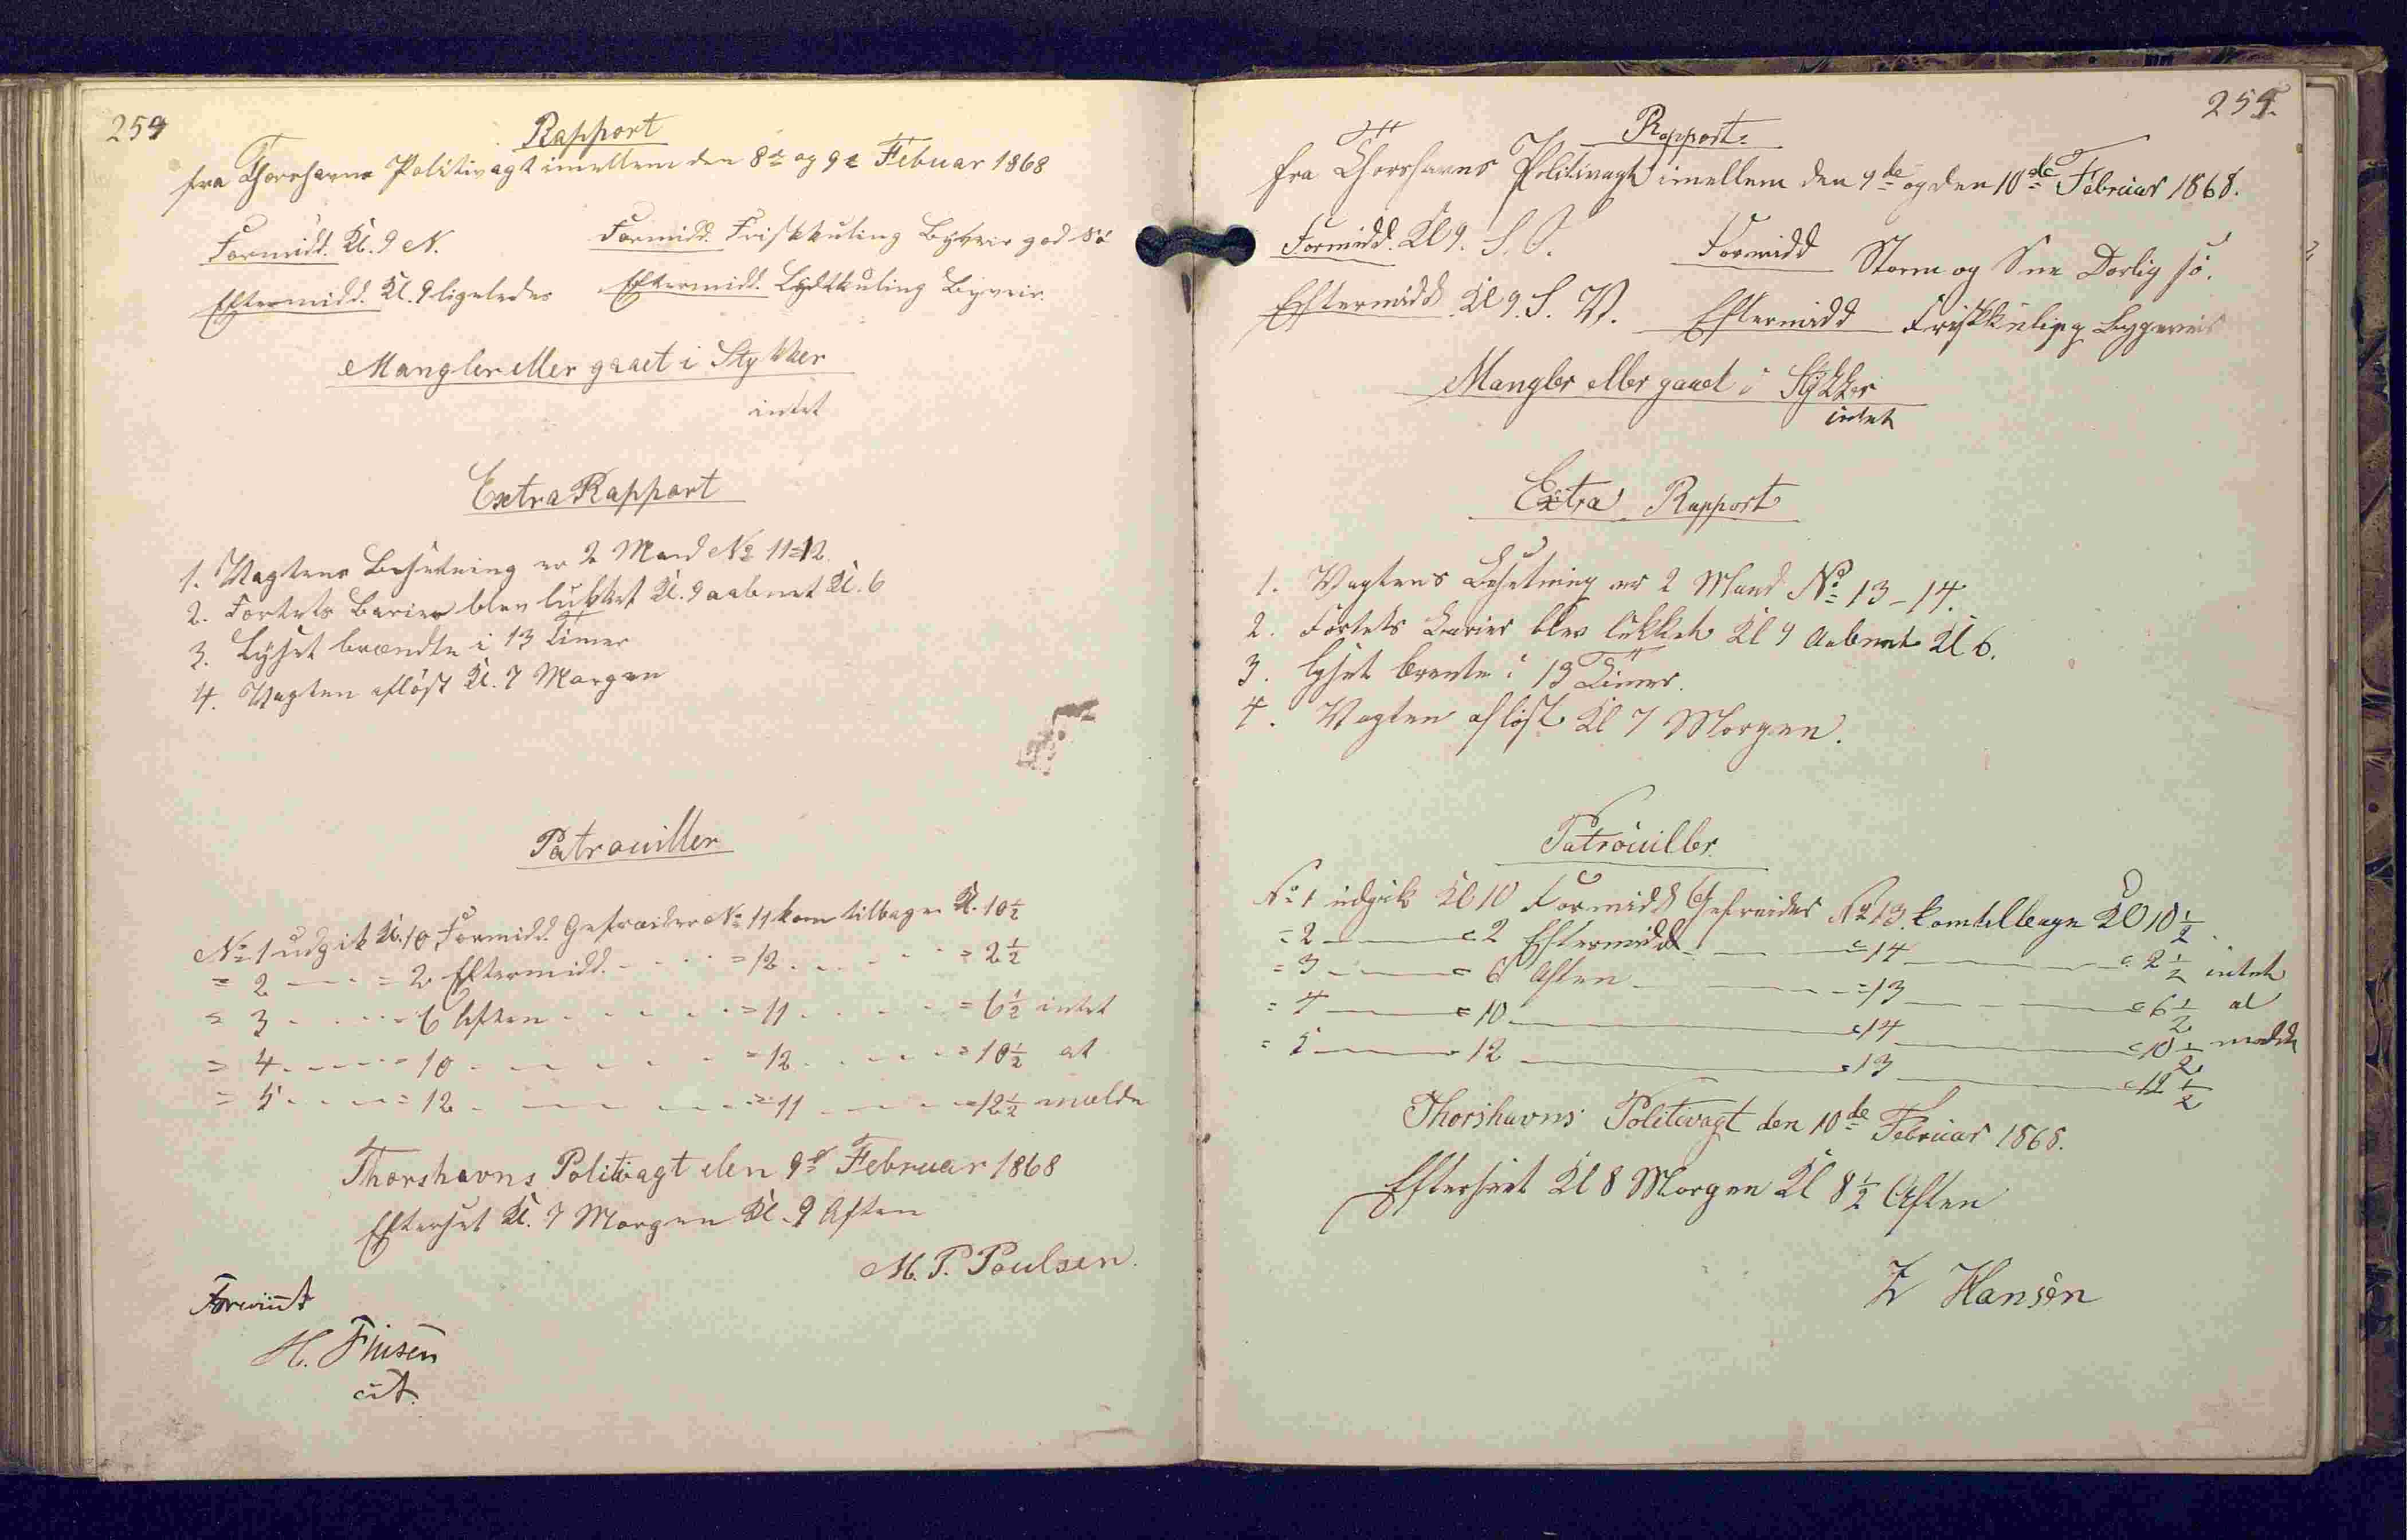 254
Rapport
fra Thorshavns Politivagt imellem den 8de og 9de Februar 1868
Formidd. Kl. 9 N. Formidd. Friskkuling Byveir god Sö
Eftermidd. Kl. 9 ligeledes Eftermidd. Lydtkuling Byveir.
Mangler eller gaaet i Stykker
intet
Extra Rapport
1. Vagtens Besetning er 2 Mand No 11=12.
2. Fortets Barier blev lukket Kl. 9 aabnet Kl. 6
3. Lyset brændte i 13 Timer
4. Vagten aflöst Kl. 7 Morgen
Patrouiller
No 1 udgik Kl. 10 Formidd. Gefraider No 11 kom tilbage Kl. 10½
= 2 - - - = 2 Eftermidd. - - - = 12 - - - = 2½
= 3 - - - = 6 Aften - - - = 11 - - - = 6½ intet
= 4 - - - = 10 - - - = 12 - - - = 10½ at
= 5 - - - = 12 - - - = 11 - - - = 12½ melde
Thorshavns Politivagt den 9de Februar 1868
Efterset Kl. 7 Morgen Kl. 9 Aften
M. P. Poulsen.
Foreviist
H. Finsen
cst.
255.
Rapport.
fra Thorshavns Politivagt imellem den 9de og den 10de Februar 1868.
Formidd. Kl 9. S. O. Formidd Storm og Sne Dorlig sö.
Eftermidd Kl 9. S. V. Eftermidd Friskkuling Bygeveir
Mangler eller gaaet i Stykker
intet
Extra Rapport
1. Vagtens Besetning er 2 Mand No 13-14.
2. Fortets Barier blev lukket Kl 9 Aabnet Kl 6.
3. Lyset brente i 13 Timer.
4. Vagten aflöst Kl 7 Morgen.
Patrouiller.
No 1 udgik Kl 10 Formidd Gefreider No 13. kom tilbage Kl 10½.
= 2 - - - = 2 Eftermidd - - - = 14 - - - = 2½ intet
= 3 - - - = 6 Aften - - - = 13 - - - = 6½ at
= 4 - - - = 10 - - - = 14 - - - = 10½ melde
= 5 - - - = 12 - - - = 13 - - - = 12½
Thorshavns Politivagt den 10de Februar 1868.
Efterseet Kl 8 Morgen Kl 8½ Aften
Hansen